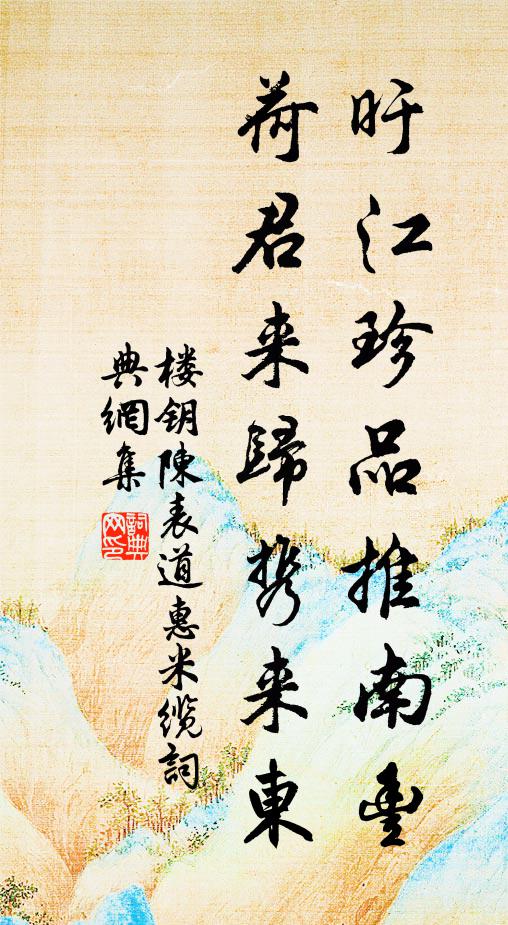 旴江珍品推南豐
荷君来歸携来東
楼钥陳表道惠米纜詞
典網集
詞典
网印